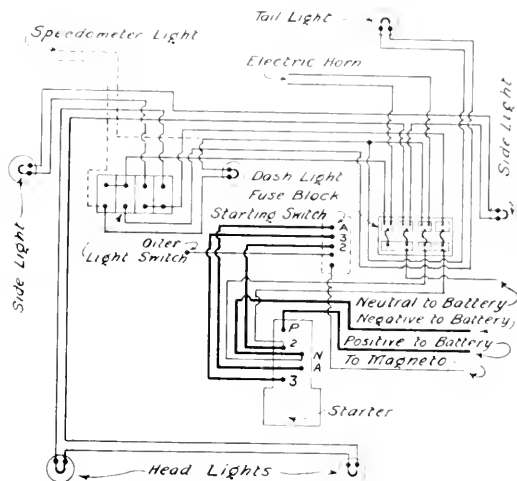 Tail Light
Speedometer Light
Electric Horn
Side Light
Dash Light
Fuse Block
Starting Switch
A
3
2
Oiler
Light Switch
Side Light
Neutral to Battery
Negative to Battery
Positive to Battery
To Magneto
P
2
N
A
3
Starter
Head Lights